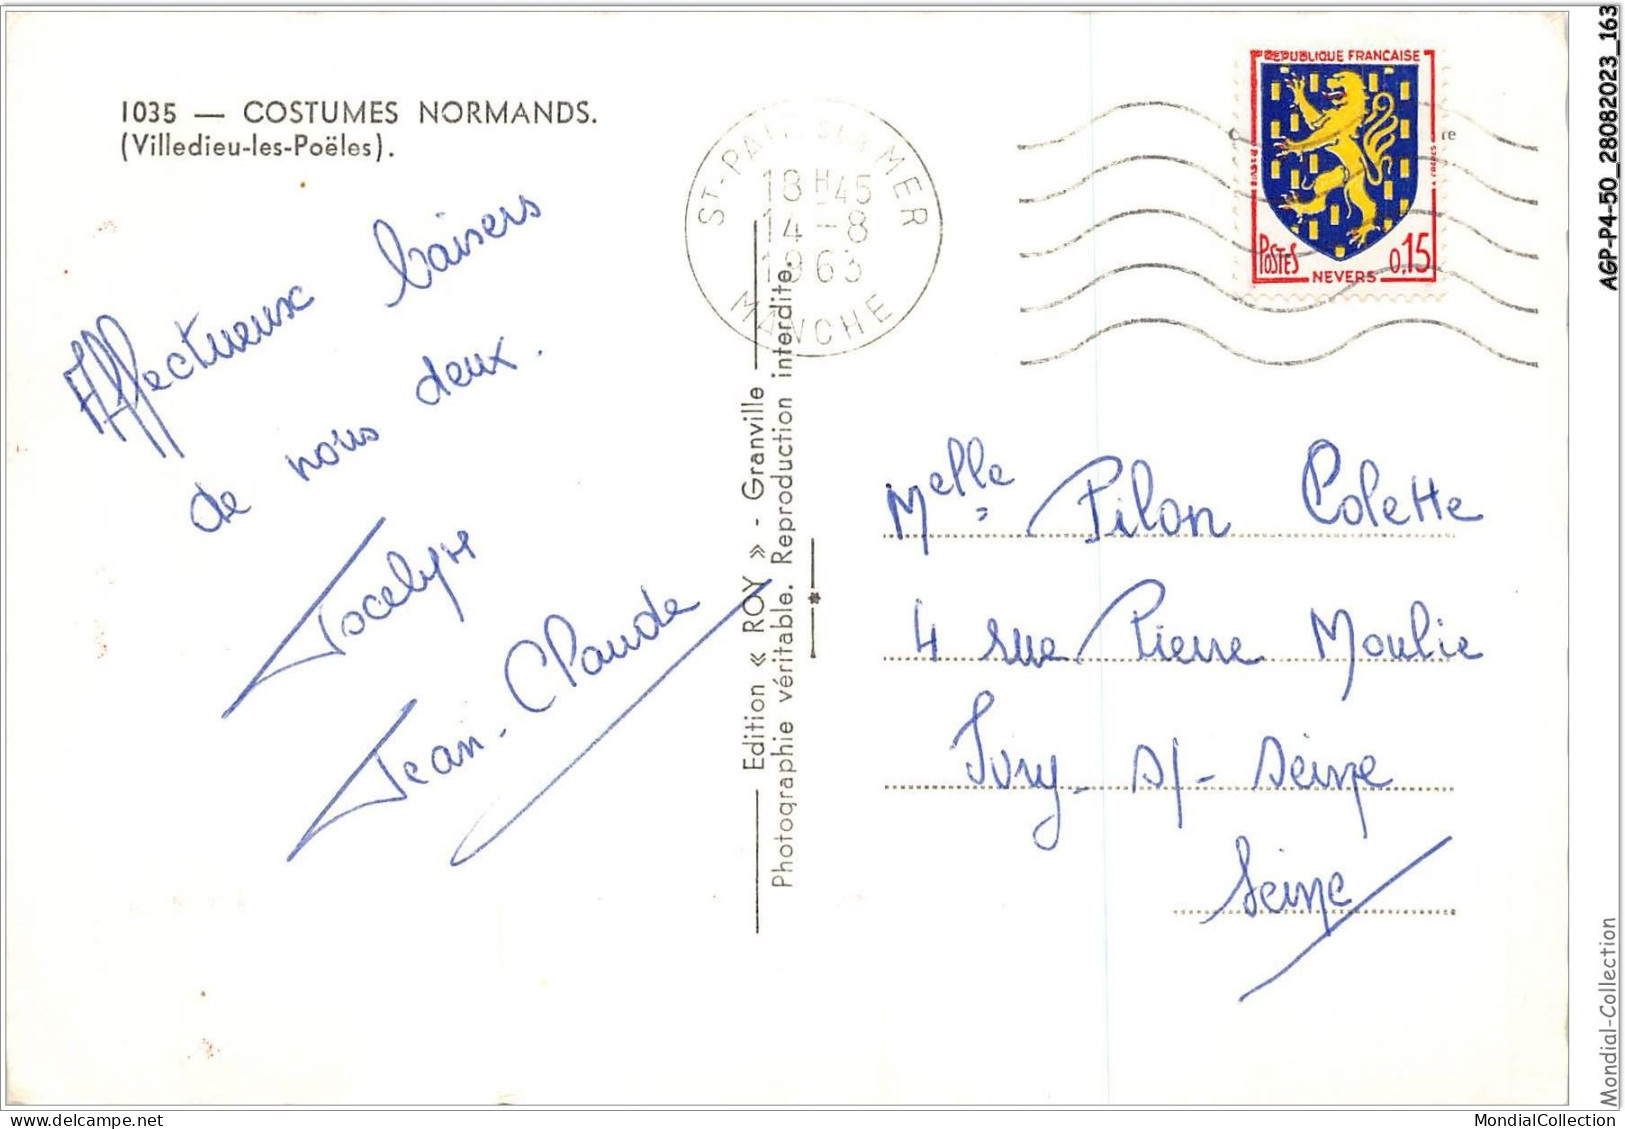 1035 — COSTUMES NORMANDS.
(Villedieu-les-Poëles).
Affectueux baisers
de nous deux.
Jocelyn
Jean-Claude
ST-PAIR-SUR-MER
18H45
14-8
1963
MANCHE
Edition « ROY » - Granville
Photographie véritable. Reproduction interdite.
REPUBLIQUE FRANÇAISE
POSTES
0,15
NEVERS
re
Melle Pilon Colette
4 rue Pierre Moulie
Ivry s/- Seine
Seine
AGP-P4-50_28082023_163
Mondial-Collection
www.delcampe.net
MondialCollection